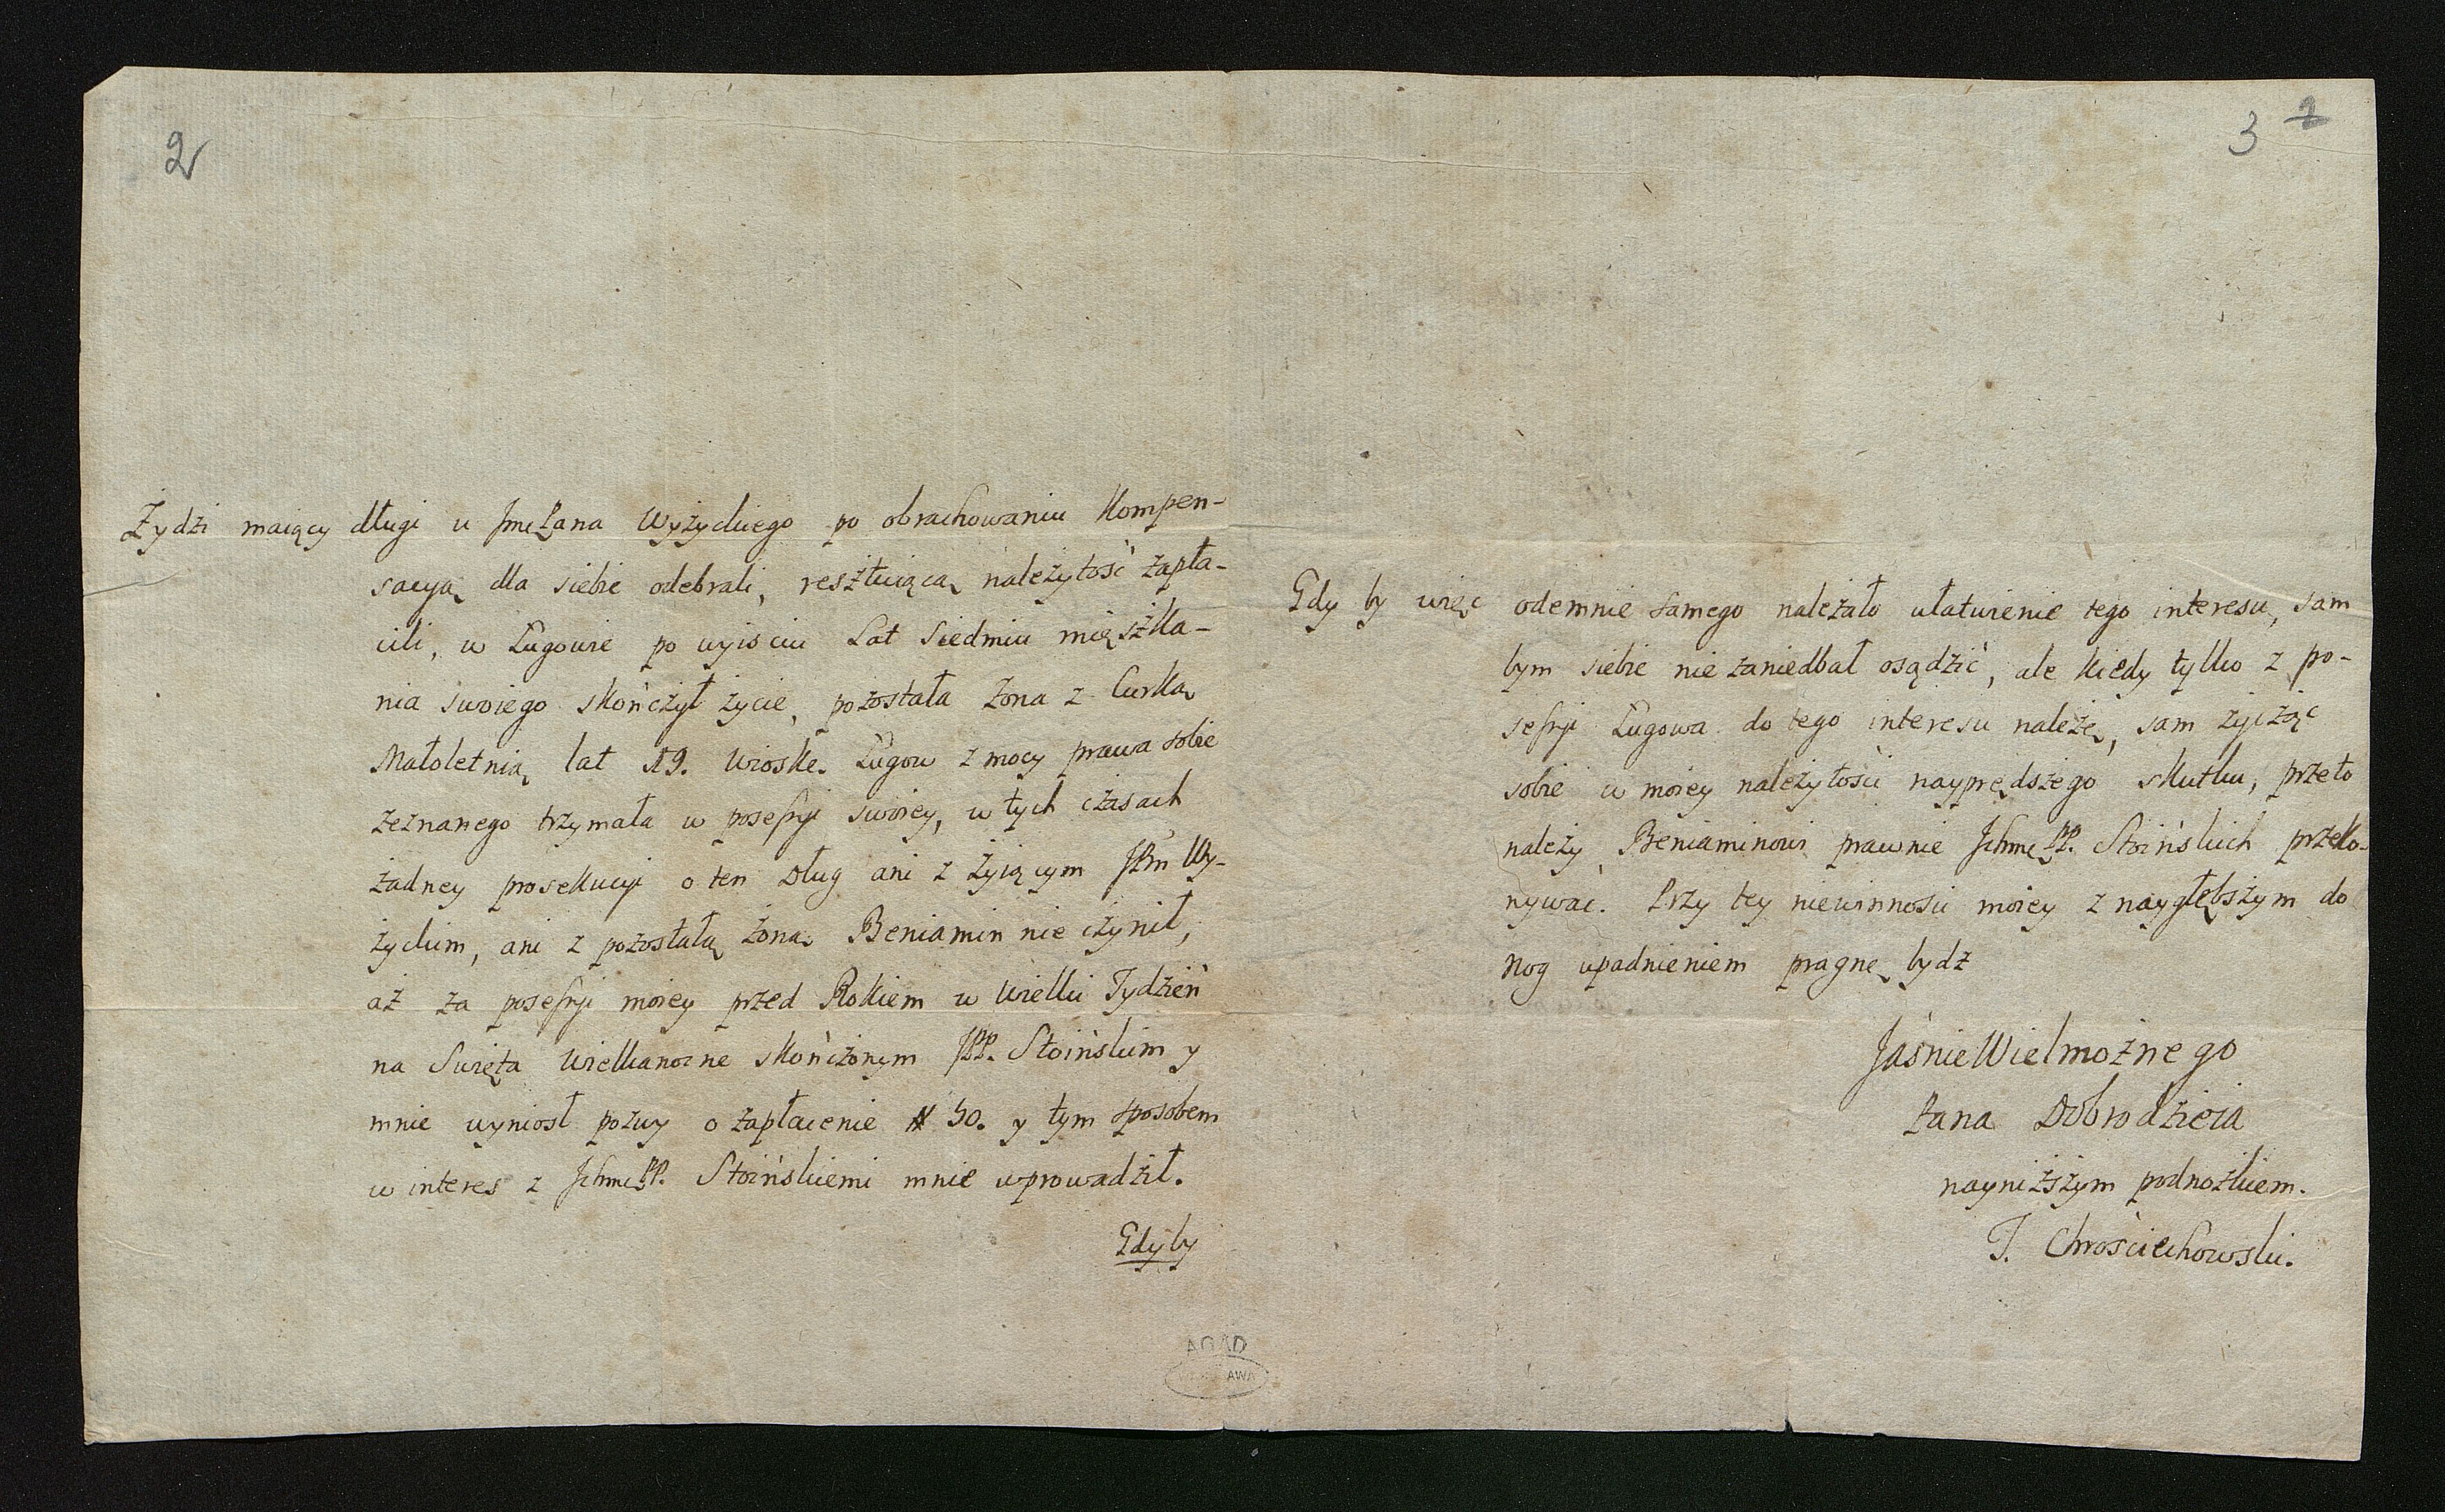 2
Żydźi maiący długi u JmćPana Wyżyckiego po obrachowaniu Kompen-
sacyą dla siebie odebrali, resztuiącą należytość zapła-
cili, w Ługowie po wyiściu Lat Siedmiu mięszka-
nia swoiego skończył życie, pozostała żona z Curką
Małoletnią lat 19. wioskę Ługow z mocy prawa sobie
zeznanego trzymała w posessyi swoiey, w tych czasach
żadney prosekucyi o ten Dług ani z żyiącym JPm Wy-
życkim, ani z pozostałą żoną Beniamin nie czynił,
aż za posessyi moiey przed Rokiem w Wielki Tydzień
na Swięta Wielkanocne skończonym JPP. Stoińskim y
mnie wyniosł pozwy o zapłacenie # 50. y tym sposobem
w interes z JchmćPP. Stoińskiemi mnie wprowadził.
Gdyby
ADAD
AWA
3 2
Gdy by więc odemnie samego należało ułatwienie tego interesu, sam
bym siebie nie zaniedbał osądźić, ale kiedy tylko z po-
sessyi Ługowa do tego interesu należę, sam życżąc
sobie w moiey należytości nayprędszego skutku, przeto
należy Beniaminowi prawnie JchmćPP. Stoińskich przeko-
nywać. Przy tey niewinnosci moiey z naygłębszym do
nog upadnieniem pragnę bydź
JaśnieWielmożnego
Pana Dobrodzieia
nayniższym podnożkiem.
J. Chrościechowski.